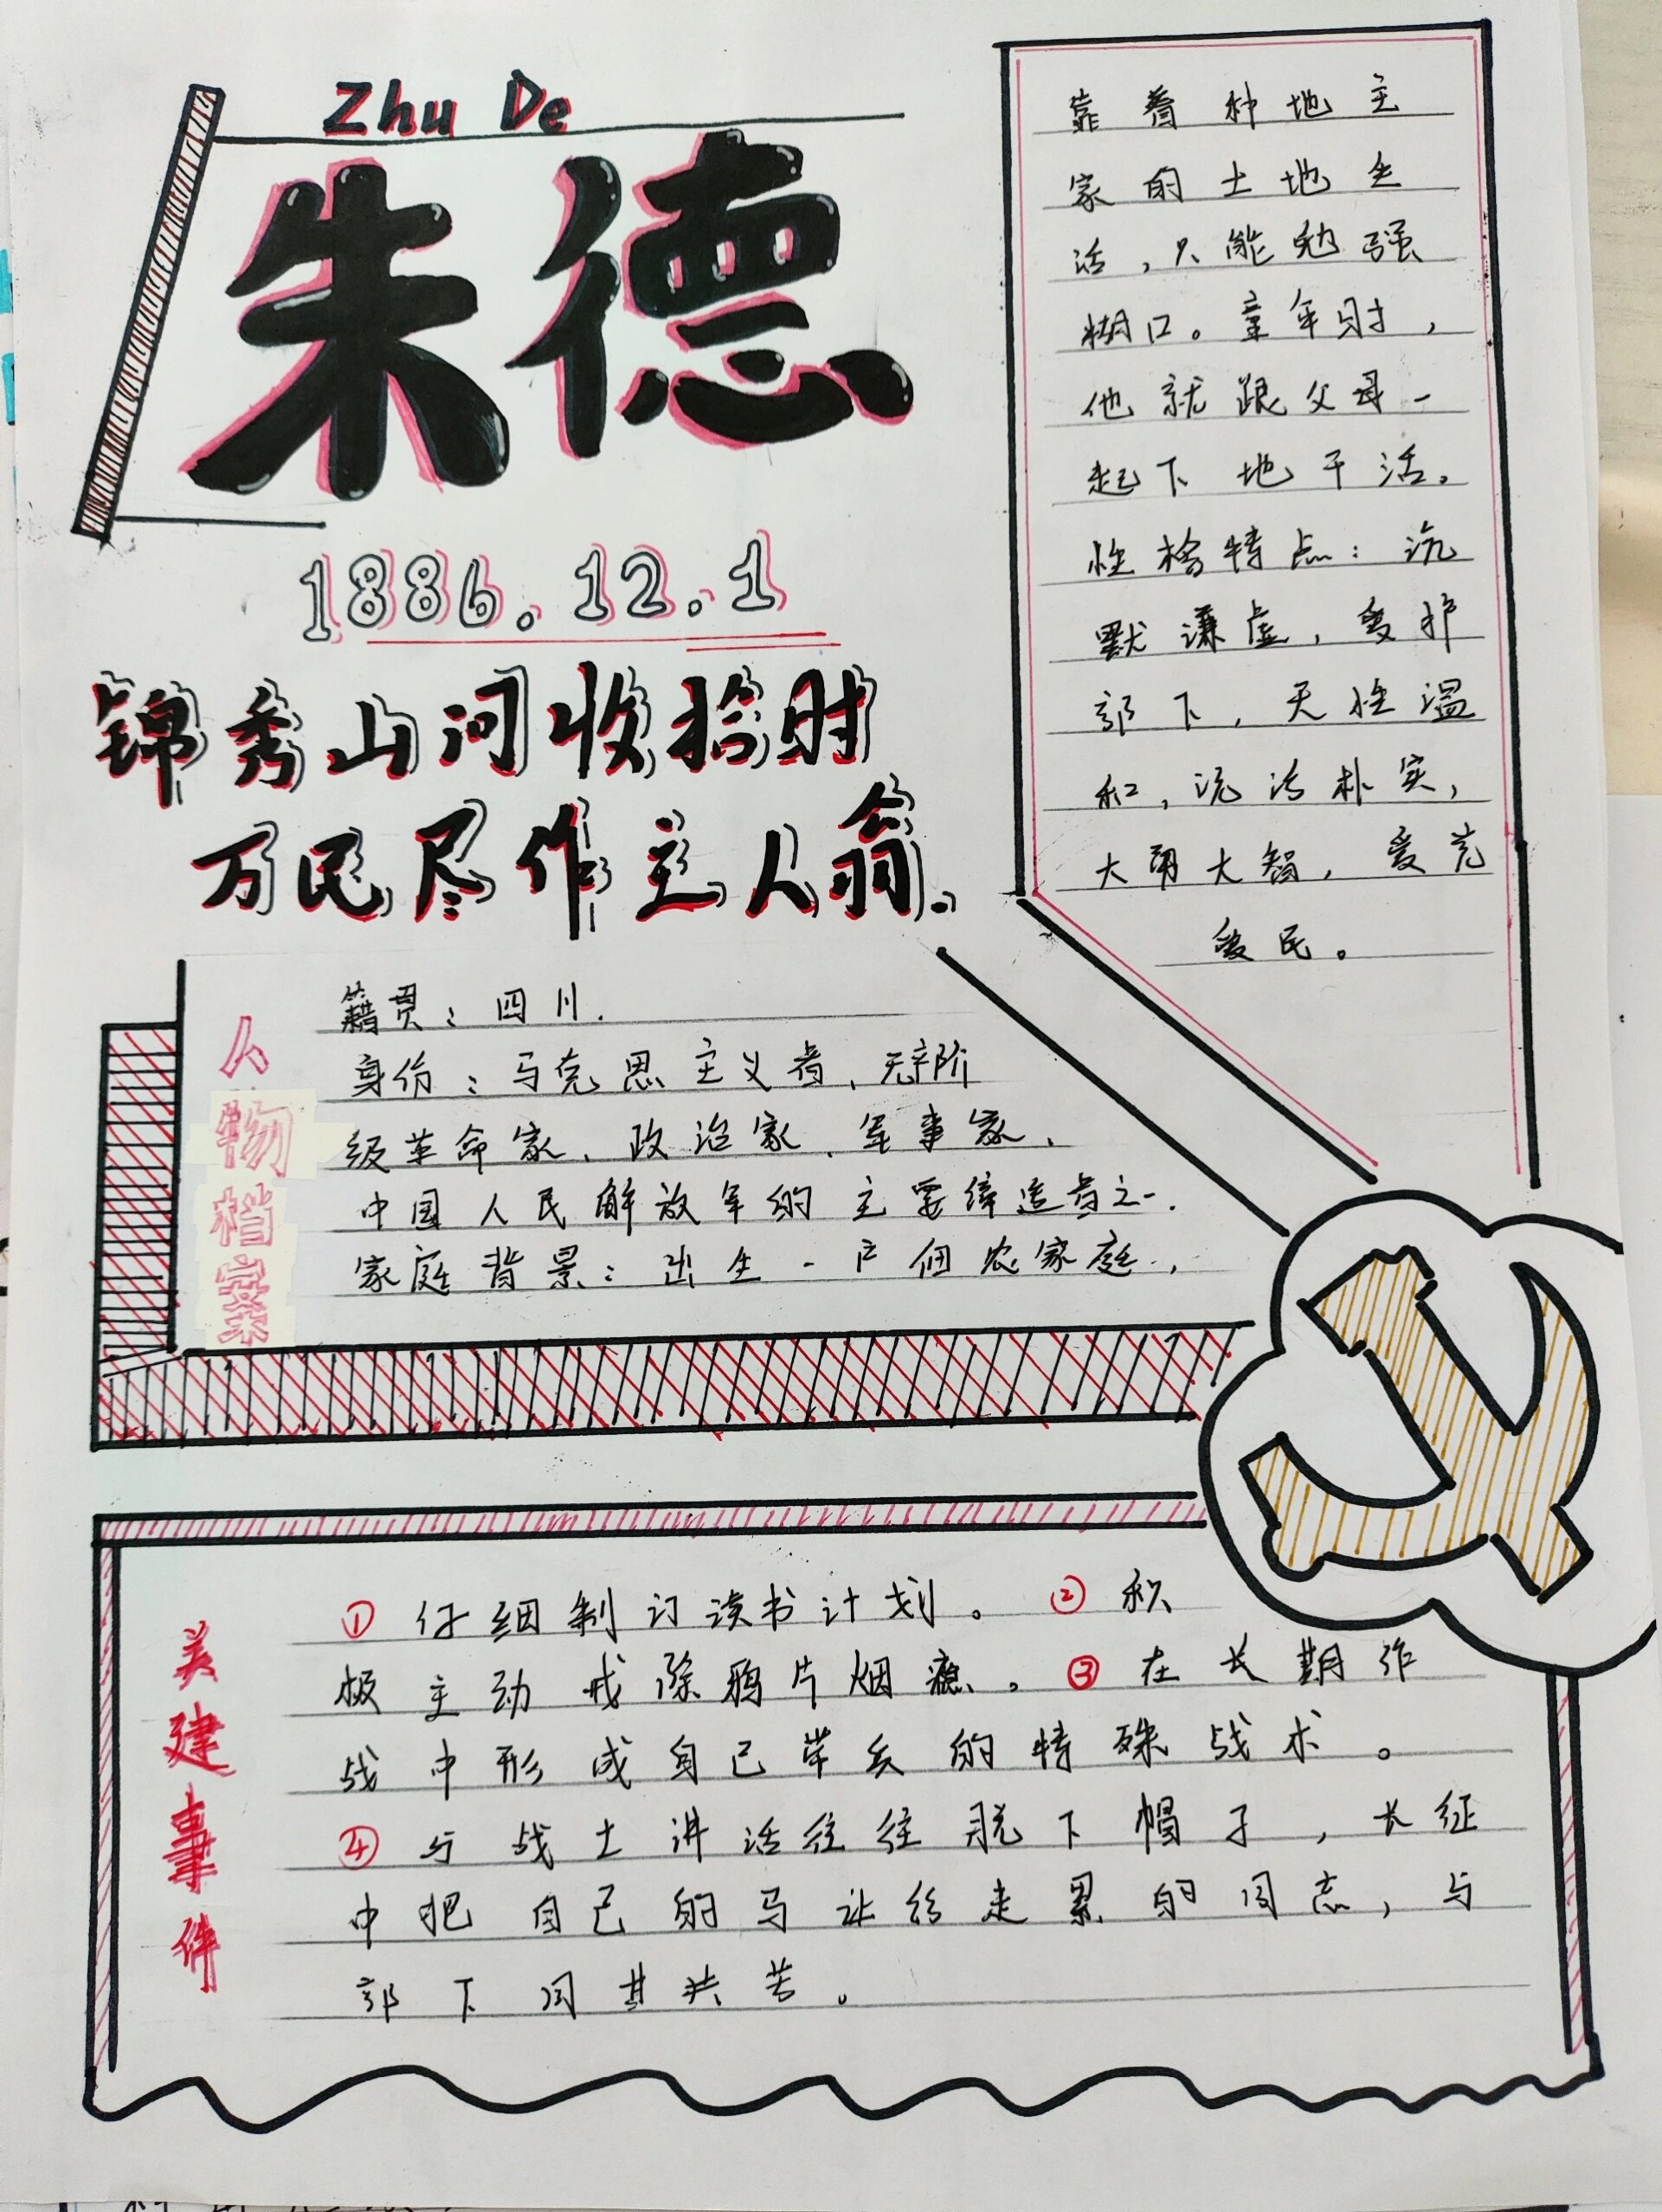 Zhu De
朱德
1886.12.1
锦秀山河收拾时
万民尽作主人翁.
人物档案
籍贯：四川.
身份：马克思主义者、无产阶
级革命家、政治家、军事家、
中国人民解放军的主要缔造者之一.
家庭背景：出生一户佃农家庭，
靠着种地主
家的土地生
活，只能勉强
糊口。童年时，
他就跟父母一
起下地干活。
性格特点：沉
默谦虚，爱护
部下，天性温
和，说话朴实，
大勇大智，爱党
爱民。
美建事件
① 仔细制订读书计划。 ② 积
极主动戒除鸦片烟瘾。③ 在长期作
战中形成自己带兵的特殊战术。
④ 与战士讲话往往脱下帽子，长征
中把自己的马让给走累的同志，与
部下同甘共苦。